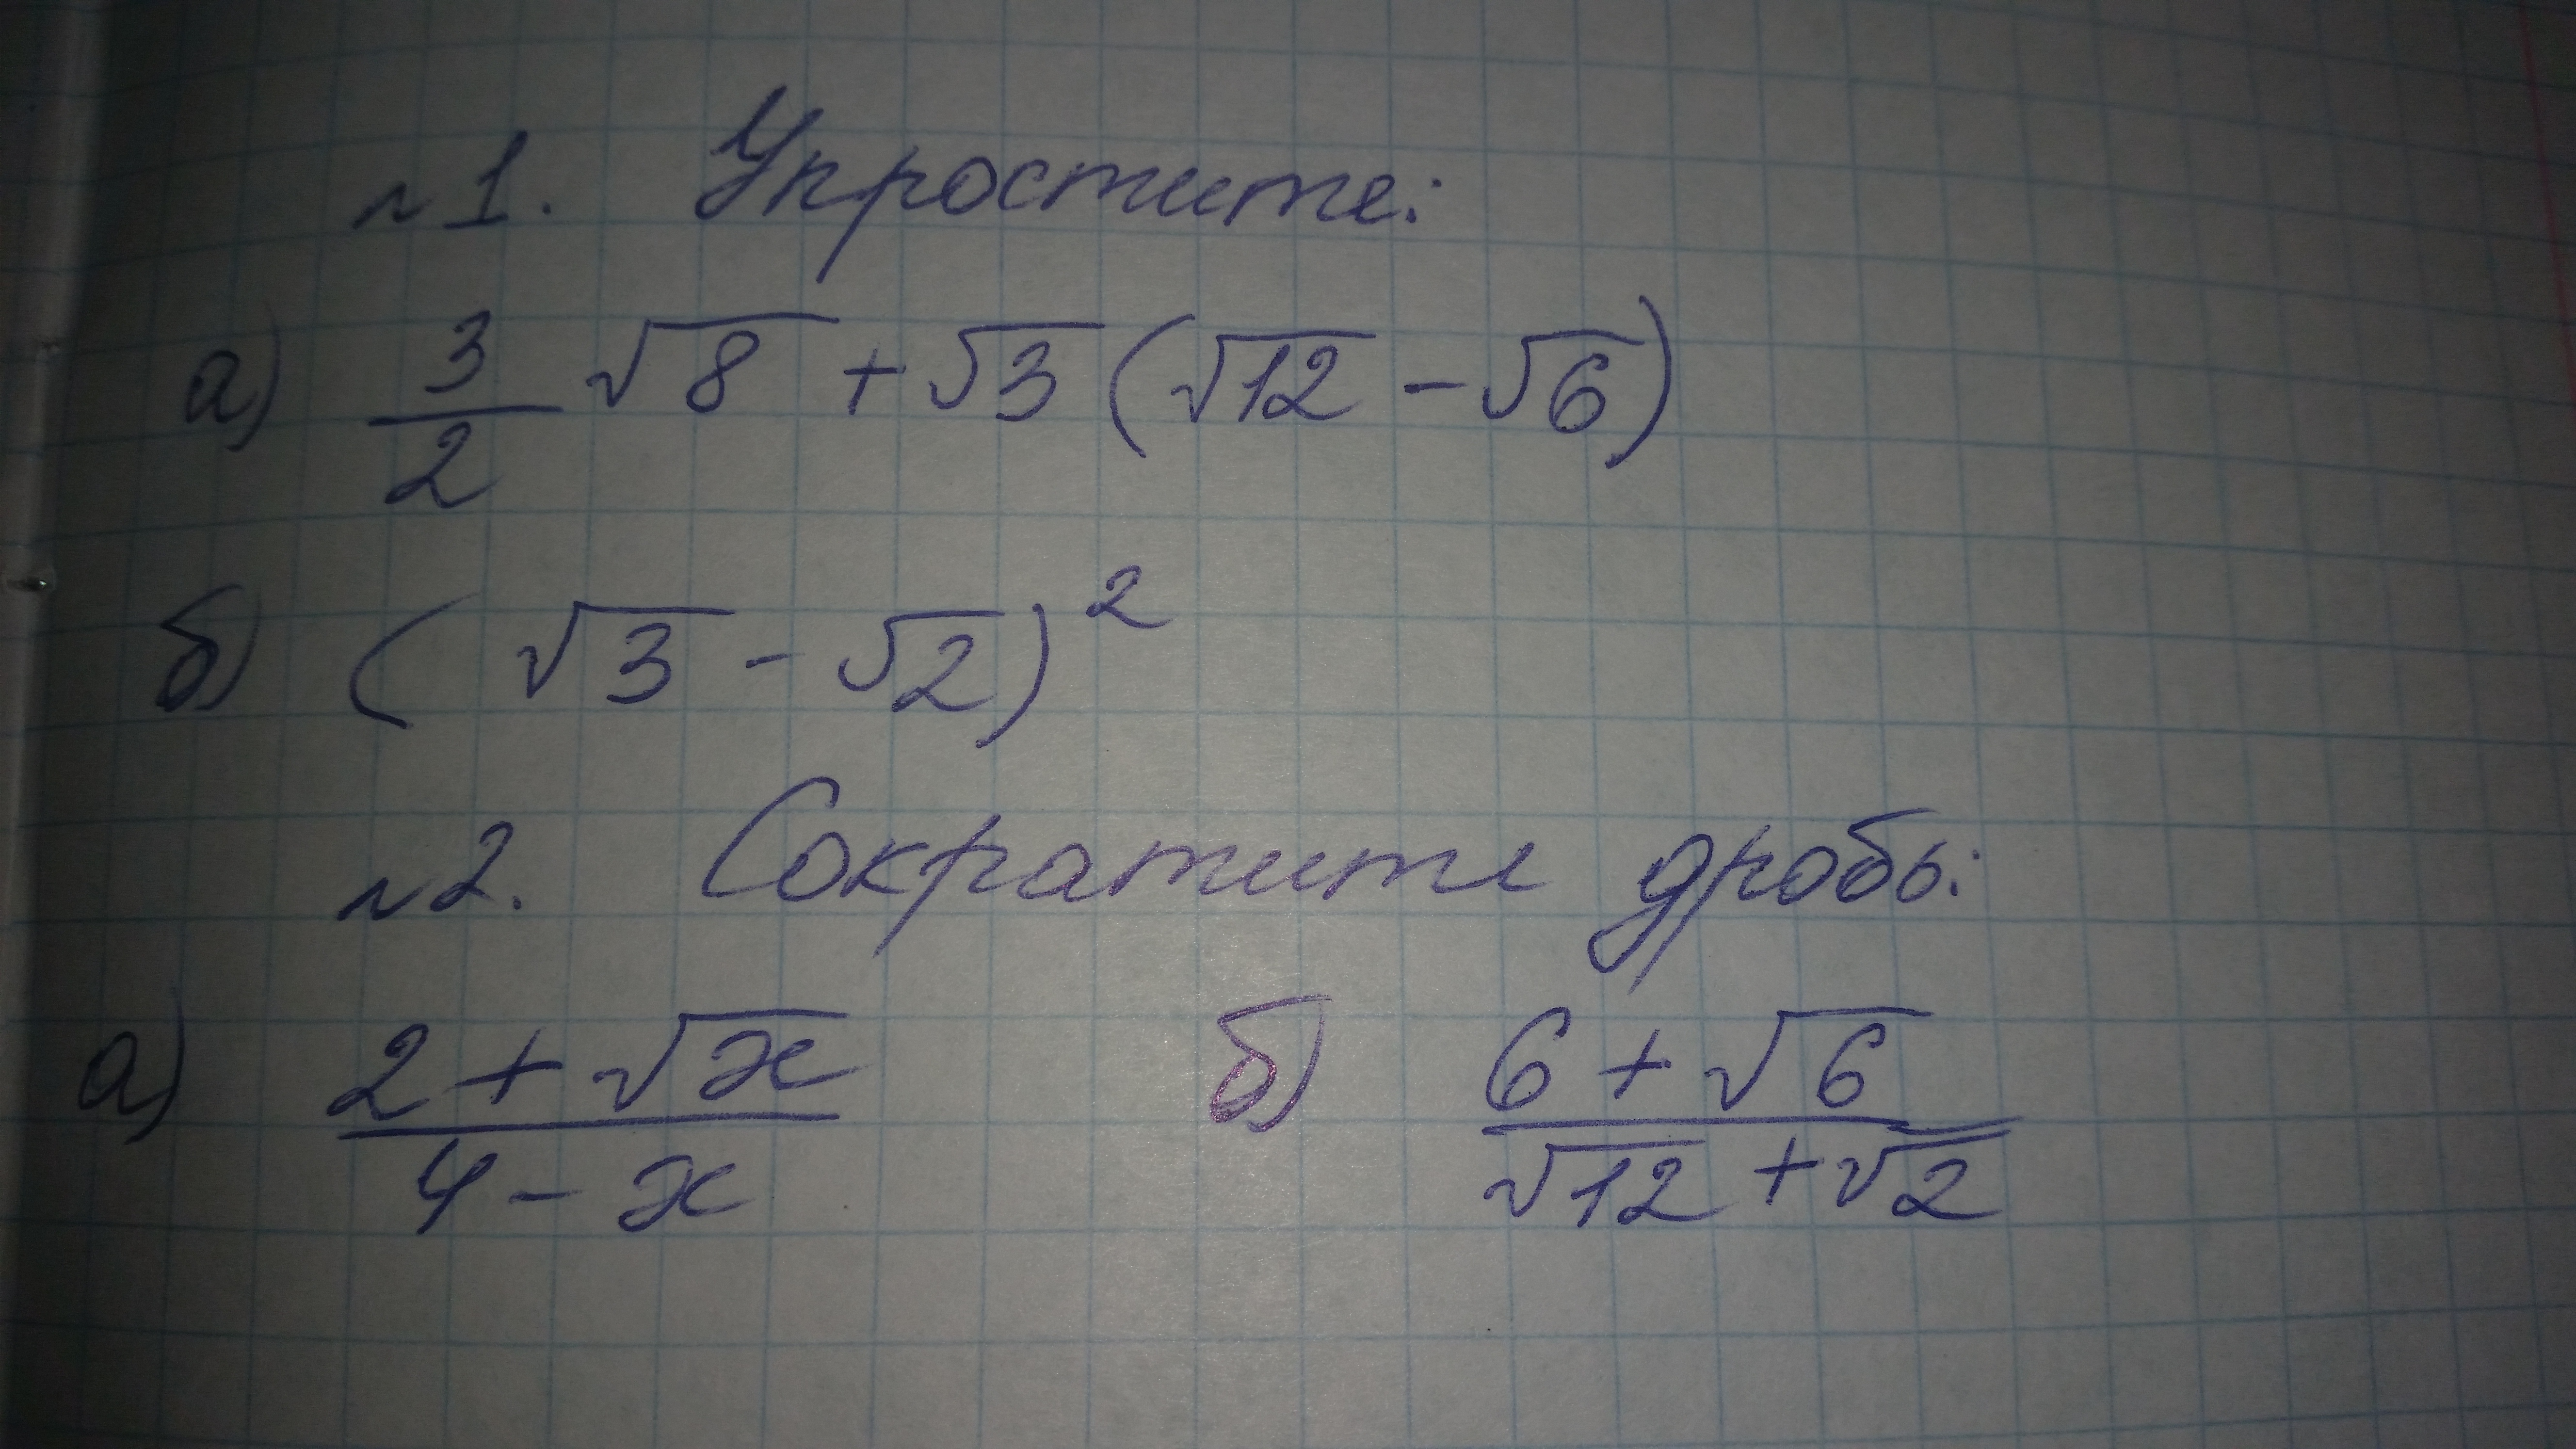 №1. Упростите:
а) 3/2 √8 + √3 (√12 - √6)
б) (√3 - √2)²
№2. Сократите дробь:
а) (2 + √x)/(4 - x) б) (6 + √6)/(√12 + √2)